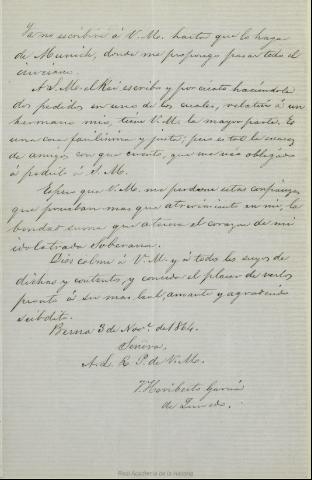 Ya no escribiré á V.M. hasta que lo haga
de Munich, donde me propongo pasar todo el
invierno.
A S.M. el Rei escribo y por cierto haciendole
dos pedidos en uno de los cuales, relativo á un
hermano mio, tiene V.M. la mayor parte. Es
una cosa facilisima y justa; pero es tal la escasez
de amigos con que cuento, que me veo obligado
á pedirlo á S.M.
Espero que V.M. me perdone estas confianzas
que prueban mas que atrevimiento en mi, la
bondad suma que atesora el corazon de mi
idolatrada Soberana.
Dios colme á V.M. y á todos los suyos de
dichas y contento, y conceda el placer de verlos
pronto á su mas leal, amante y agradecido
súbdito.
Berna 3 de Nov.e de 1864.
Señora,
A. L. R. P. de V.M.
J. Heriberto García
de Quevedo.
Real Academia de la Historia